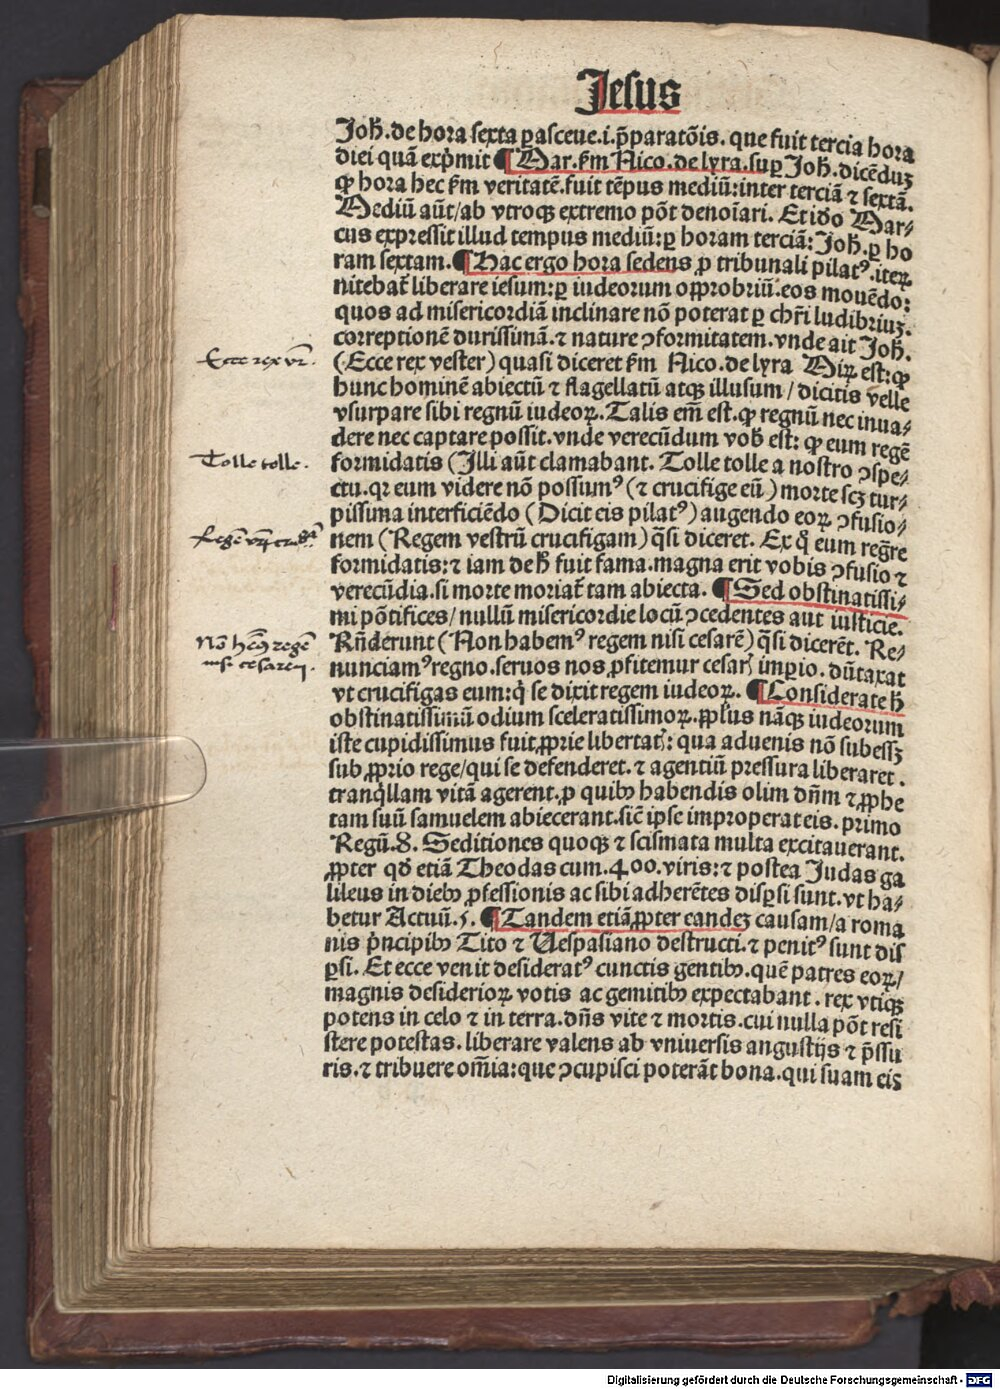 Jesus
Joh̄. de hora sexta pasceue .i. p̄paratōis. que fuit tercia hora
diei quā exp̄mit ¶ Mar. s̄m Nico. de lyra. suꝑ Joh̄. dicēduꝫ
ꝙ hora hec s̄m veritatē. fuit tēpus mediū: inter terciā ⁊ sextā.
Mediū aūt / ab vtroqꝫ extremo pōt denoīari. Et iđo Mar⸗
cus expressit illud tempus mediū: ꝑ horam terciā: Joh̄. ꝑ ho
ram sextam. ¶ Hac ergo hora sedens ꝓ tribunali pilatꝰ. iteꝝ
nitebat̄ liberare iesum: ꝑ iudeorum opprobriū. eos mouēdo:
quos ad misericordiā inclinare nō poterat ꝑ chr̄i ludibriuꝫ.
correptionē durissimā. ⁊ nature ꝯformitatem. vnde ait Joh̄.
Ecce rex vr̄.
(Ecce rex vester) quasi diceret s̄m Nico. de lyra Miꝝ est: ꝙ
hunc hominē abiectū ⁊ flagellatū atqꝫ illusum / dicitis velle
vsurpare sibi regnū iudeoꝝ. Talis em̄ est. ꝙ regnū nec inua⸗
dere nec captare possit. vnde verecūdum vob̄ est: ꝙ eum regē
Tolle tolle.
formidatis (Illi aūt clamabant. Tolle tolle a nostro ꝯspe⸗
ctu. qꝛ eum videre nō possumꝰ (⁊ crucifige eū) morte scꝫ tur⸗
pissima interficiēdo (Dicit eis pilatꝰ) augendo eoꝝ ꝯfusio⸗
Regē vrm̄
nem (Regem vestrū crucifigam) q̄si diceret. Ex q̊ eum regēre
formidatis: ⁊ iam de h̄ fuit fama. magna erit vobis ꝯfusio ⁊
verecūdia. si morte moriat̄ tam abiecta. ¶ Sed obstinatissi⸗
mi pōtifices / nullū misericordie locū ꝯcedentes aut iusticie.
Nō hēmꝰ regē
nisi cesarem.
Rn̄derunt (Non habemꝰ regem nisi cesarē) q̄si dicerēt. Re⸗
nunciamꝰ regno. seruos nos ꝓfitemur cesarꝭ imꝑio. dūtaxat
vt crucifigas eum: q̇ se dixit regem iudeoꝝ. ¶ Considerate h̄
obstinatissimū odium sceleratissimoꝝ. ꝓpl̓us nāqꝫ iudeorum
iste cupidissimus fuit ꝓprie libertatꝭ: qua aduenis nō subesꝫ
sub ꝓprio rege / qui se defenderet. ⁊ agentiū pressura liberaret.
tranq̇llam vitā agerent. ꝓ quibꝰ habendis olim dn̄m ⁊ ꝓphe
tam suū samuelem abiecerant. sic̄ ipse improperat eis. primo
Regū. 8. Seditiones quoqꝫ ⁊ scismata multa excitauerant.
ꝓpter qđ etiā Theodas cum .400. viris: ⁊ postea Judas ga
lileus in diebꝰ ꝓfessionis ac sibi adherētes disꝑsi sunt. vt ha⸗
betur Actuū. 5. ¶ Tandem etiā ꝓpter eandeꝫ causam / a roma
nis p̄ncipibꝰ Tito ⁊ Uespasiano destructi. ⁊ penitꝰ sunt dis
ꝑsi. Et ecce venit desideratꝰ cunctis gentibꝰ. quē patres eoꝝ /
magnis desiderioꝝ votis ac gemitibꝰ expectabant. rex vtiqꝫ
potens in celo ⁊ in terra. dn̄s vite ⁊ mortis. cui nulla pōt resi
stere potestas. liberare valens ab vniuersis angustijs ⁊ p̄ssu
ris. ⁊ tribuere om̄ia: que ꝯcupisci poterāt bona. qui suam eis
Digitalisierung gefördert durch die Deutsche Forschungsgemeinschaft - DFG